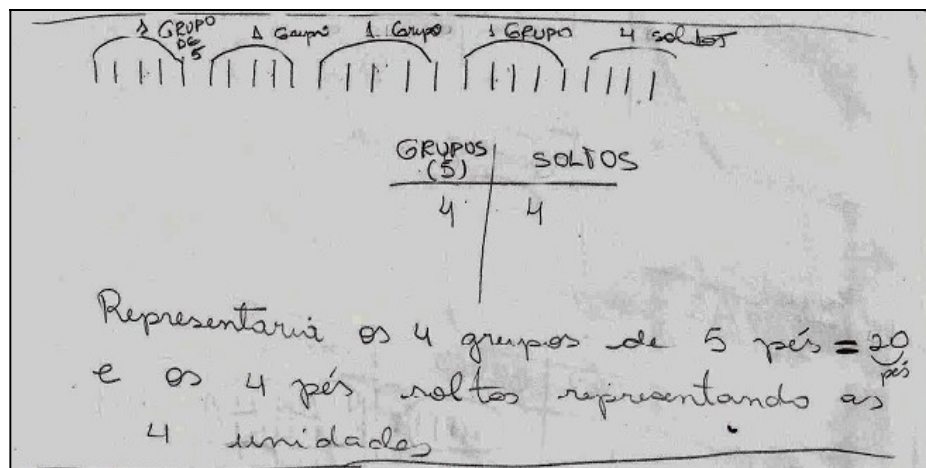 1 GRUPO DE 5 1 Grupo 1 Grupo 1 GRUPO 4 soltos
GRUPOS (5) SOLTOS
4 4
Representaria os 4 grupos de 5 pés = 20 pés
e os 4 pés soltos representando as
4 unidades